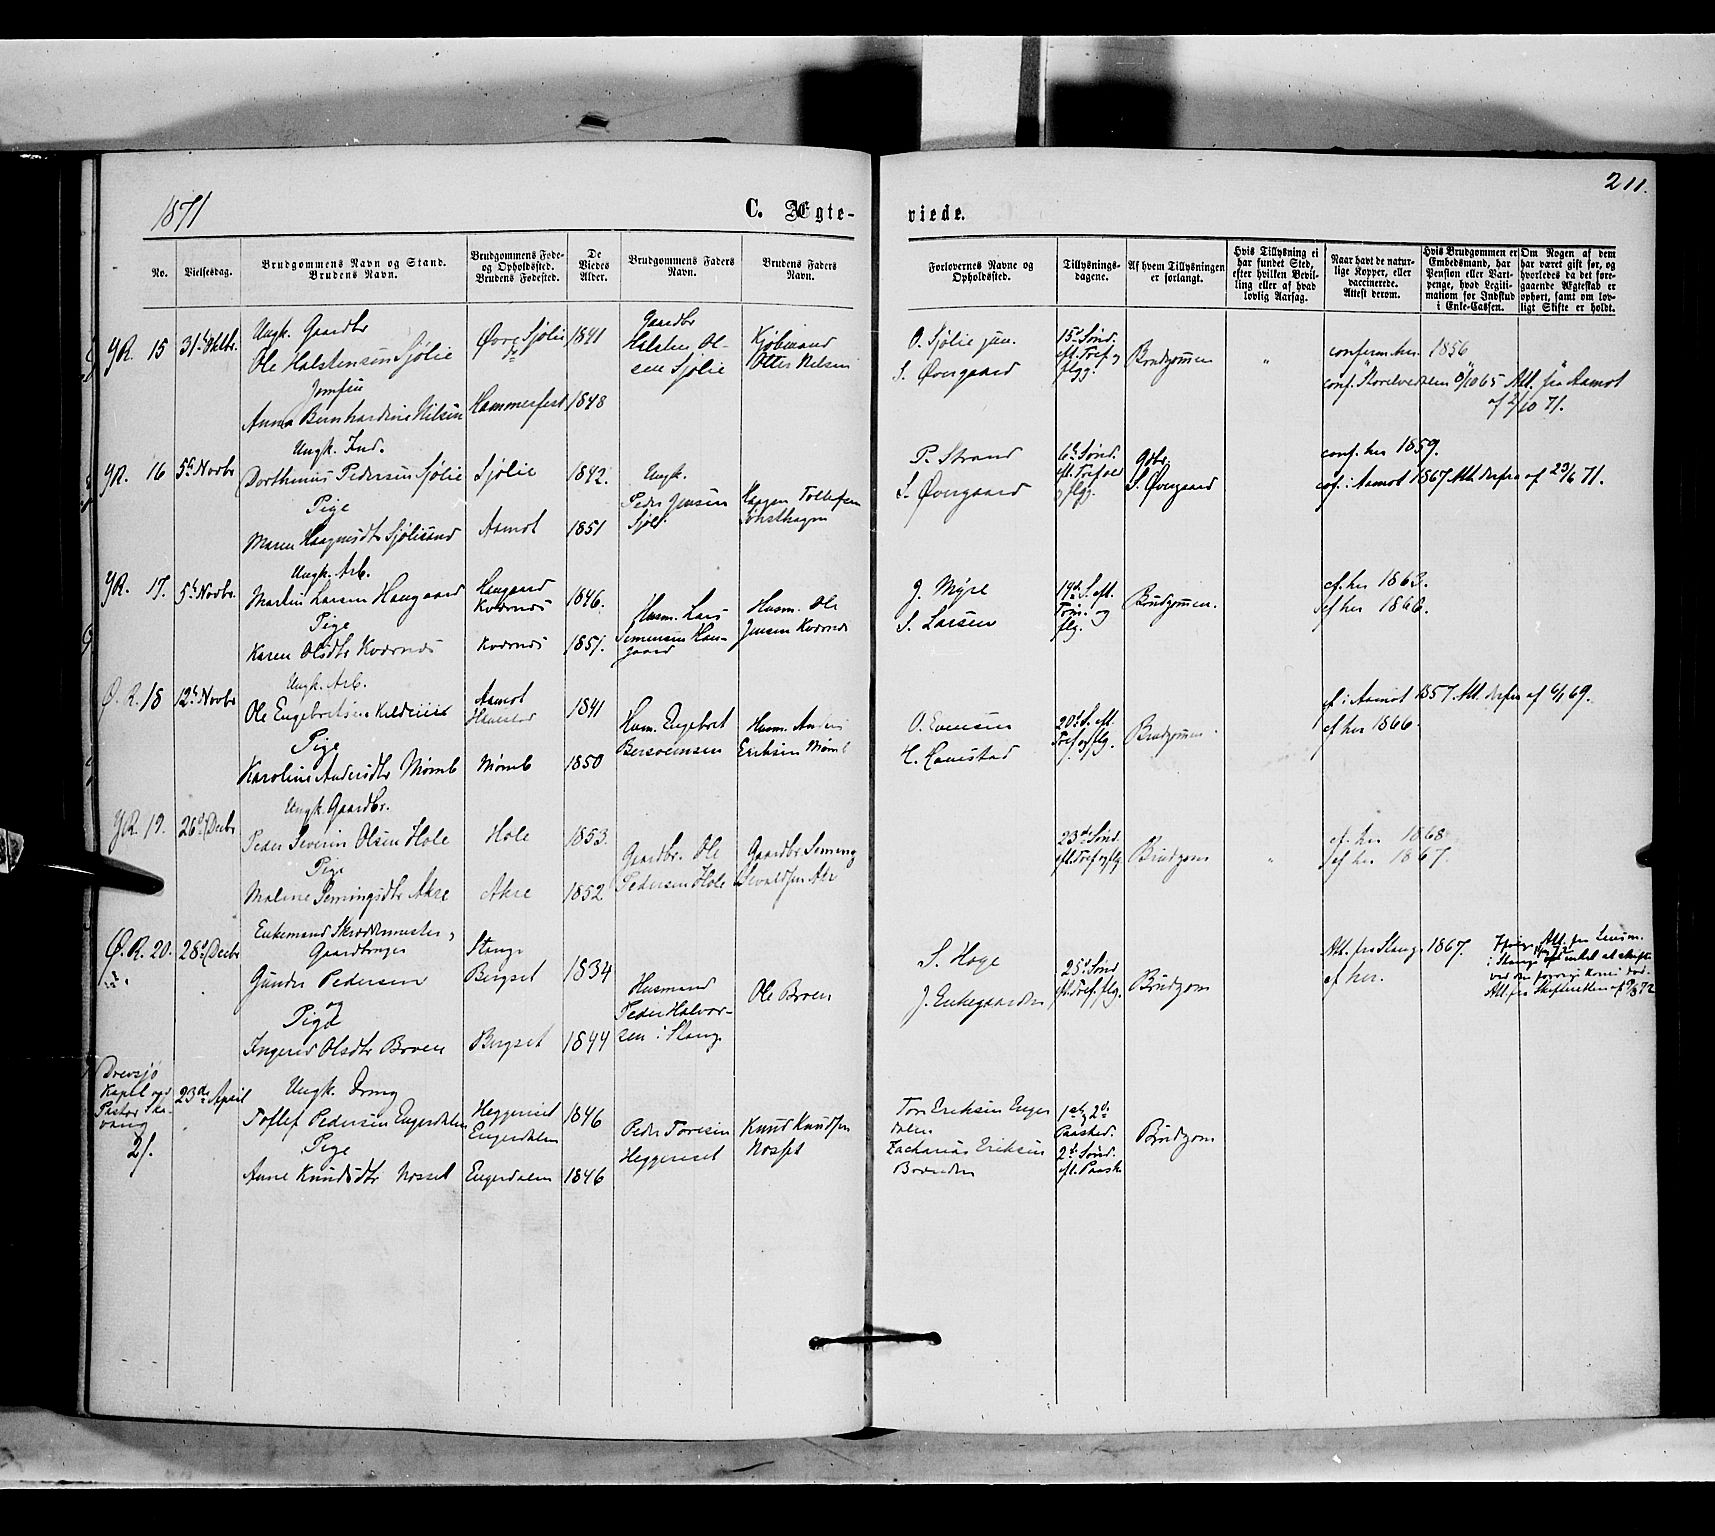 1871
C. Ægte-
viede.
211.
No.
Vielsesdag.
Brudgommens Navn og Stand.
Brudens Navn.
Brudgommens Føde-
og Opholdssted.
Brudens Fødested.
De
Viedes
Alder.
Brudgommens Faders
Navn.
Brudens Faders
Navn.
Forlovernes Navne og
Opholdssted.
Tillysnings-
dagene.
Af hvem Tillysningen
er forlangt.
Hvis Tillysning ei
har fundet Sted,
efter hvilken Bevil-
ling eller af hvad
lovlig Aarsag.
Naar havt de natur-
lige Kopper, eller
vaccinerede.
Attest derom.
Hvis Brudgommen er
Embedsmand, har
Pension eller Vart-
penge, hvad Legiti-
mation for Indskud
i Enke-Cassen.
Om Nogen af dem
har været gift før, og
hvorledes da det fore-
gaaende Ægteskab er
ophørt, samt om lov-
ligt Skifte er holdt.
YR. 15
Ungk. Gaardbr
Ole Halstensen Sjølie
Jomfru
Anna Bernhardine Nilsen
Øvre Sjølie
do
Hammerfest
1841
1848
Gaardbr
Halsten Ol-
sen Sjølie
Kjøbmand
Otter Nilsen
O. Sjølie jun.
S. Øvergaard
15d Sønd.
eft. Tref. og
flgg.
Brudgommen
"
conferm. her 1856
conf. Storelvedalen 8/10 65 Att. fra Aamot
af 2/10 71.
YR. 16
5te Novbr
Ungk. Ind.
Dorthinus Pedersen Sjølie
Pige
Maren Haagensdtr Sjølisand
Sjølie
Aamot
1842.
1851
Ungk.
Peder Jensen
Sjøli
Haagen Tollefsen
P. Strand
S. Øvergaard
Gdbr.
S. Øvergaard
conf. her 1859.
conf. i Aamot 1867 Att. derfra af 23/6 71.
YR. 17.
5te Novbr.
Ungk. Arb.
Martin Larsen Haugaard
Pige
Karen Olsdtr Kværnæs
Haugaard
Kværnæs
Kværnæs
1846.
1851.
Husm. Lars
Simensen Hau-
gaard
Husm. Ole
Jensen Kværnæs
J. Myre
S. Larsen
14de S. eft.
Trin. og
flg.
Brudgommen.
cf. her 1863.
cf her 1866.
Ø. R. 18
12te Novbr
Ungk. Arb.
Pige
Karoline Andersdtr Mømb
Aamot
Hanestad
Mømb
1841
1850
Husm. Engebret
Husm. Anders
Eriksen Mømb
O. Evensen
H. Hanestad
20de S. eft.
Tref. og flg.
Brudgommen.
cf i Aamot 1857. Att. derfra af 6/1 69.
cf her 1866.
YR. 19.
26de Decbr
Ungk. Gaardbr.
Peder Severin Olsen Hole
Pige
Maline Semingsdtr Akre
Hole
Akre
1853.
1852
Gaardbr. Ole
Pedersen Hole
Gaardbr Seming
Sevaldsen Akre
23de Sønd.
eft. Tref og flg
Brudgom
"
cf. her 1868
cf her 1867.
Ø. R. 20.
28de Decbr
Enkemand Skreddermester,
Gaardbruger
Gunder Pedersen
og
Pige
Ingerid Olsdtr Broen
Stange
Bergset
Bergset
1834
1844
Husmand
Peder Halvor-
sen i Stange
Ole Broen
S. Hoge
J. Enkegaarden
25de Sønd
eft. Tref. flg.
Brudgom
Att. fra Stange 1867.
cf her.
Att. fra Skifteretten af 9/3 72
Drevsjø
Kapel ved
Pastor Ska-
vang
21.
23de April
Ungk. Dreng
Toflef Pedersen Engerdalen
Pige
Anne Knudsdtr Nosset
Heggeriset
Engerdalen
Engerdalen
1846
1846
Peder Toresen
Heggeriset
Knud Knudsen
Nosset
Tor Eriksen Enger
dalen
Zacharias Eriksen
Brænden
1ste og 2de
Paasked.
2de Sønd.
eft. Paaske
Brudgom